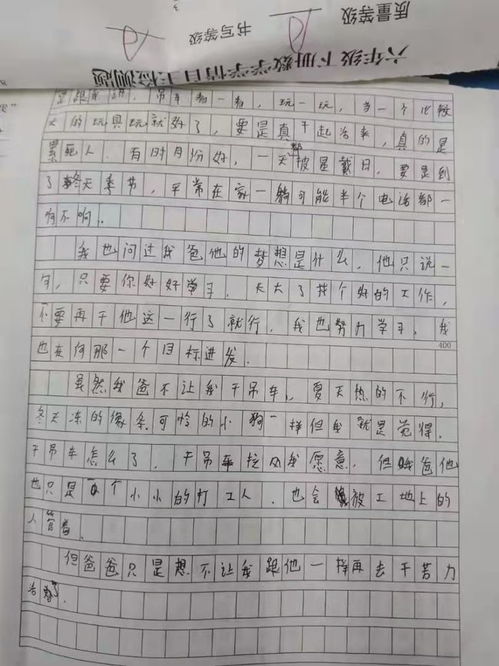 六年级下册数学学情自主检测题
书写等级
质量等级
是跟车进，吊车抽一抽，玩一玩，当一个比较
大的玩具玩就好了，要是真干起活来，真的是
累死人。有时月份好，一天都披星戴月，要是到
了冬天季节，平常在家一躺可能半个电话都一
响不响。
我也问过我爸他的梦想是什么，他只说一
句，只要你好好学习，长大了找个好的工作，
不要再干他这一行了就行，我也努力学习，我
400
也在向那一个目标进发。
虽然我爸不让我干吊车，夏天热的不行，
冬天冻的像条可怜的小狗一样但我就是觉得，
干吊车怎么了，干吊车拉风我愿意，但我爸他
也只是个小小的打工人，也会被工地上的
人管着，
但爸爸只是想不让我跟他一样再去干苦力
活了。